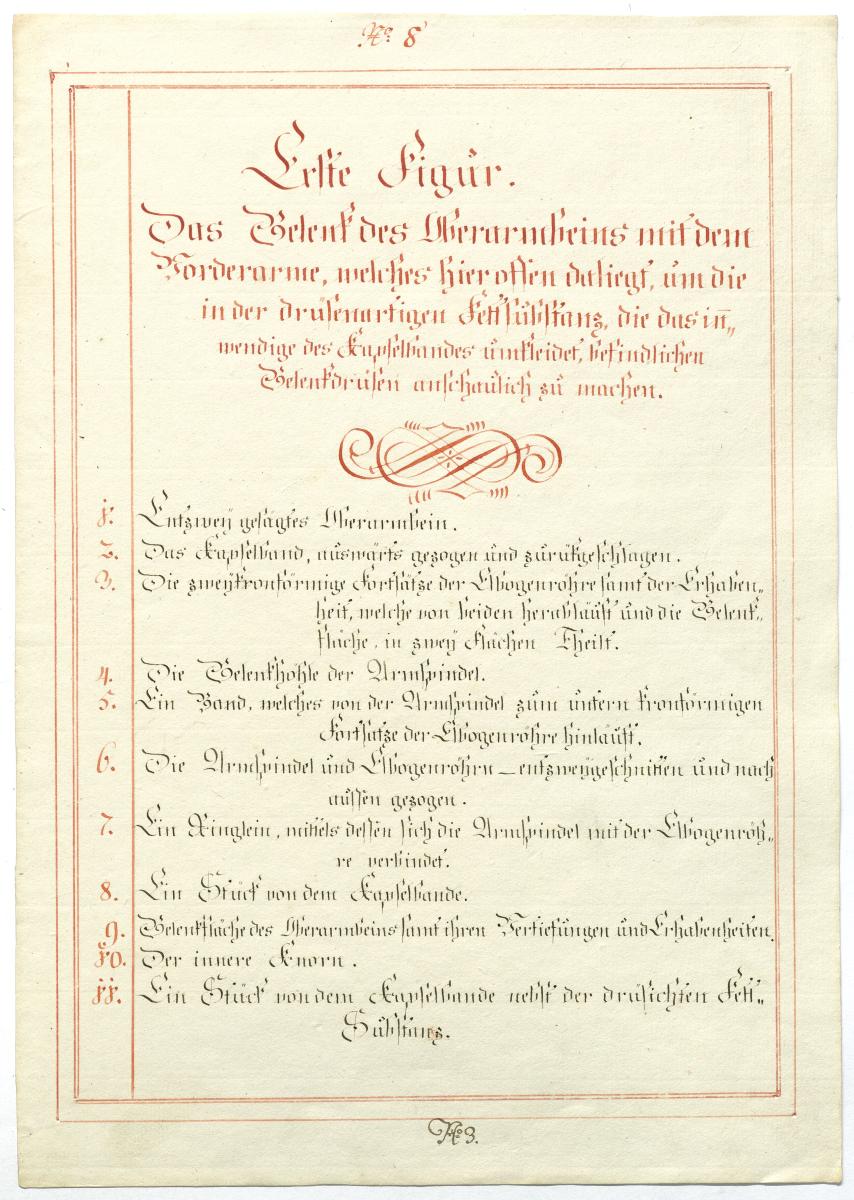 No. 8
Erste Figur.
Das Gelenk des Oberarmbeins mit dem
Vorderarme, welches hier offen daliegt, um die
in der drüsenartigen Fettsubstanz, die das in„
wendige des Kapselbandes umkleidet, befindlichen
Gelenkdrüsen anschaulich zu machen.
1. Entzwey gesägtes Oberarmbein.
2. Das Kapselband, auswärts gezogen und zurükgeschlagen.
3. Die zwey kronförmige Fortsätze der Elbogenröhre samt der Erhaben„
heit, welche von beiden herabläuft und die Gelenk„
fläche, in zwey Flächen Theilt.
4. Die Gelenkhöhle der Armspindel.
5. Ein Band, welches von der Armspindel zum untern kronförmigen
Fortsatze der Elbogenröhre hinläuft.
6. Die Armspindel und Elbogenröhrn – entzweygeschnitten und nach
aussen gezogen.
7. Ein Ringlein, mittels dessen sich die Armspindel mit der Elbogenröh„
re verbindet.
8. Ein Stück von dem Kapselbande.
9. Gelenkfläche des Oberarmbeins samt ihren Vertiefungen und Erhabenheiten.
10. Der innere Knorn.
11. Ein Stück von dem Kapselbande nebst der drüsichten Fett„
Substanz.
No. 3.